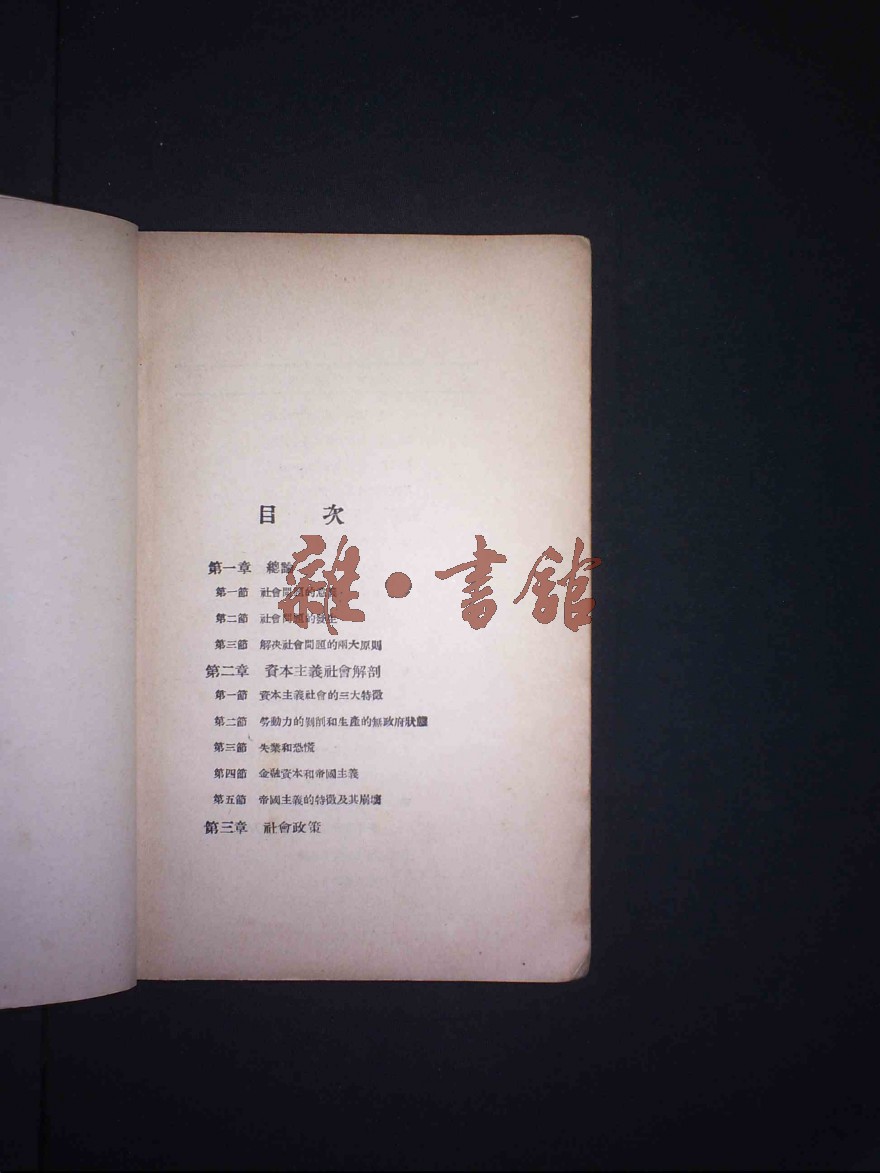 目 次
第一章 總論
第一節 社會問題的意義
第二節 社會問題的發生
第三節 解决社會問題的兩大原則
第二章 資本主義社會解剖
第一節 資本主義社會的三大特徵
第二節 勞動力的剝削和生產的無政府狀態
第三節 失業和恐慌
第四節 金融資本和帝國主義
第五節 帝國主義的特徵及其崩壞
第三章 社會政策
雜·書館